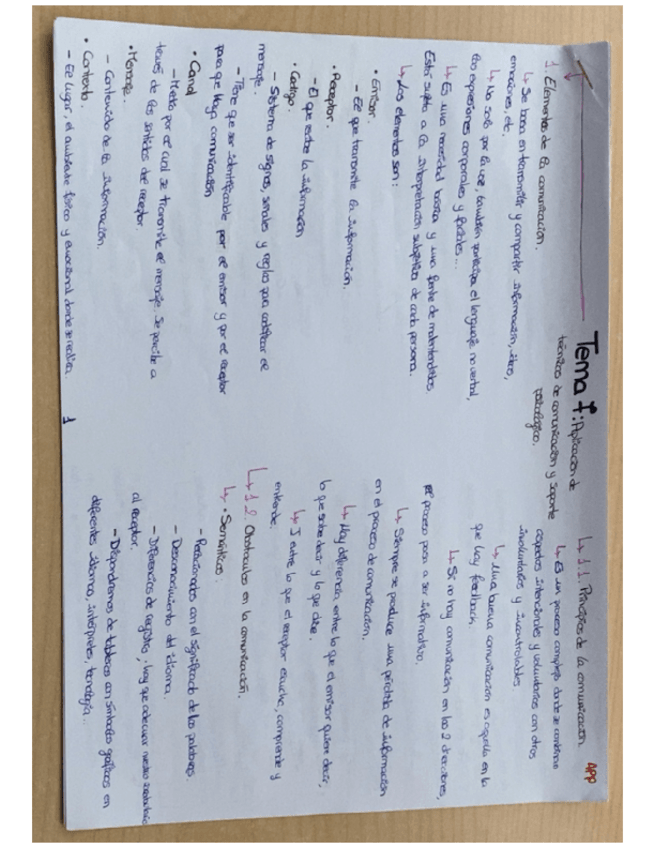 APP
Tema 7: Aplicación de
técnicas de comunicación y soporte
psicológico.
1. Elementos de la comunicación.
↳ Se basa en transmitir y compartir información, ideas,
emociones, etc.
↳ No solo por la voz, también participa el lenguaje no verbal,
las expresiones corporales y faciales...
↳ Es una necesidad básica y una fuente de malentendidos.
Está sujeta a la interpretación subjetiva de cada persona.
↳ Los elementos son:
• Emisor.
- El que transmite la información.
• Receptor.
- El que recibe la información
• Código.
- Sistema de signos, señales y reglas para codificar el
mensaje.
- Tiene que ser identificable por el emisor y por el receptor
para que haya comunicación
• Canal
- Medio por el cual se transmite el mensaje. Se percibe a
través de los sentidos del receptor.
• Mensaje.
- Contenido de la información.
• Contexto.
- El lugar, el ambiente físico y emocional donde se realiza.
1
↳ 1.1. Principios de la comunicación.
↳ Es un proceso complejo donde se combinan
aspectos intencionales y voluntarios con otros
involuntarios y incontrolables
↳ Una buena comunicación es aquella en la
que hay feedback.
↳ Si no hay comunicación en las 2 direcciones,
el proceso pasa a ser informativo.
↳ Siempre se produce una pérdida de información
en el proceso de comunicación.
↳ Hay diferencia, entre lo que el emisor quiere decir,
lo que sabe decir y lo que dice.
↳ Y entre lo que el receptor escucha, comprende y
entiende.
↳ 1.2. Obstáculos en la comunicación.
↳ • Semánticos:
- Relacionados con el significado de las palabras.
- Desconocimiento del idioma.
- Diferencias de registro, hay que adecuar nuestro vocabulario
al receptor.
- Dispondremos de tableros con símbolos gráficos en
diferentes idiomas, intérpretes, tecnología...